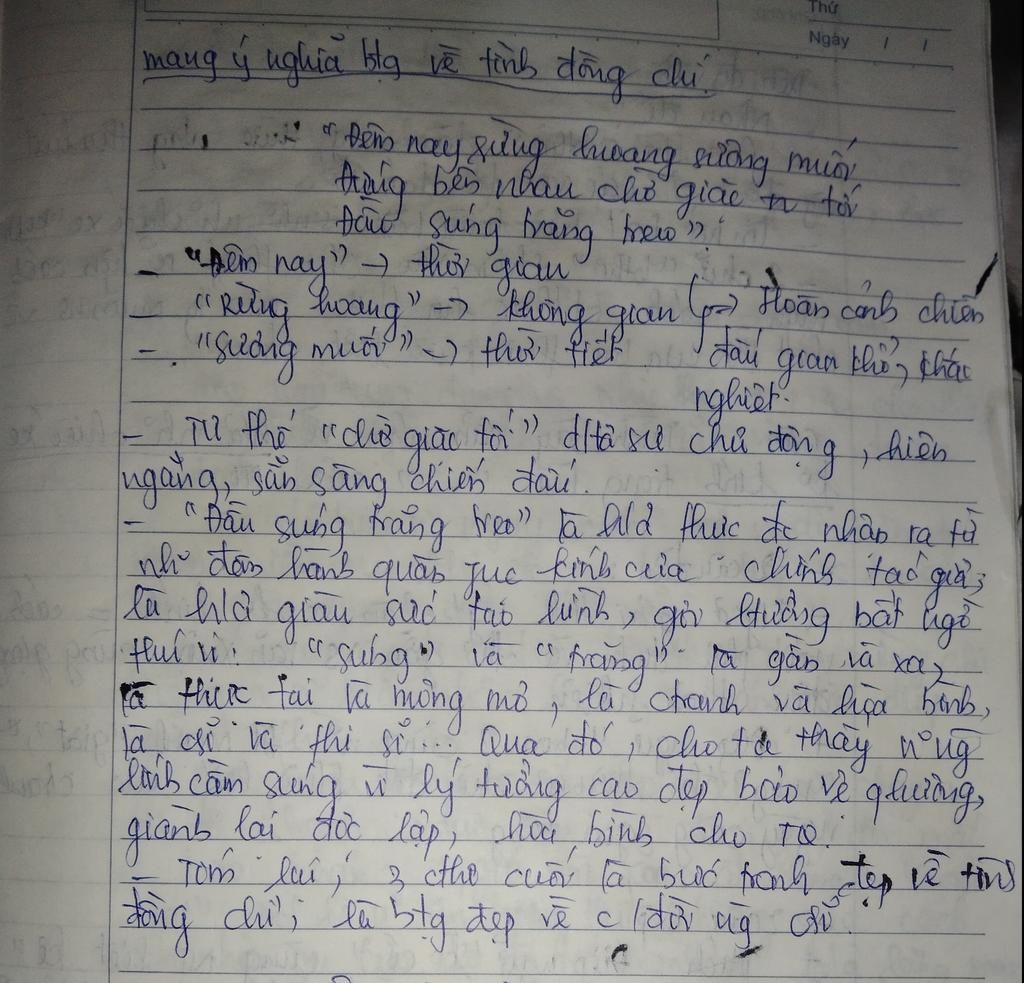 Thứ
Ngày / /
mang ý nghĩa btg về tình đồng chí.
"Đêm nay rừng hoang sương muối
Đứng bên nhau chờ giặc tới
Đầu súng trăng treo".
- "Đêm nay" -> thời gian
- "Rừng hoang" -> không gian => Hoàn cảnh chiến
- "Sương muối" -> thời tiết đấu gian khổ, khắc
nghiệt.
- Tư thế "chờ giặc tới" sự chủ động, hiên
ngang, sẵn sàng chiến đấu.
- "Đầu súng trăng treo" là h/ả thực đc nhận ra từ
nh~ đêm hành quân phục kích của chính tác giả,
là h/ả giàu sức tạo hình, gợi ltưởng bất ngờ
thú vị. "súng" và "trăng" là gần và xa,
là thực tại và mộng mơ, là ctranh và hòa bình,
là csĩ và thi sĩ... Qua đó, cho ta thấy n~ ng`
lính cầm súng vì lý tưởng cao đẹp bảo vệ qhương,
giành lại độc lập, hòa bình cho TQ.
- Tóm lại, 3 cthơ cuối là bức tranh đẹp về tình
đồng chí, là btg đẹp về c/đời ng` csĩ.